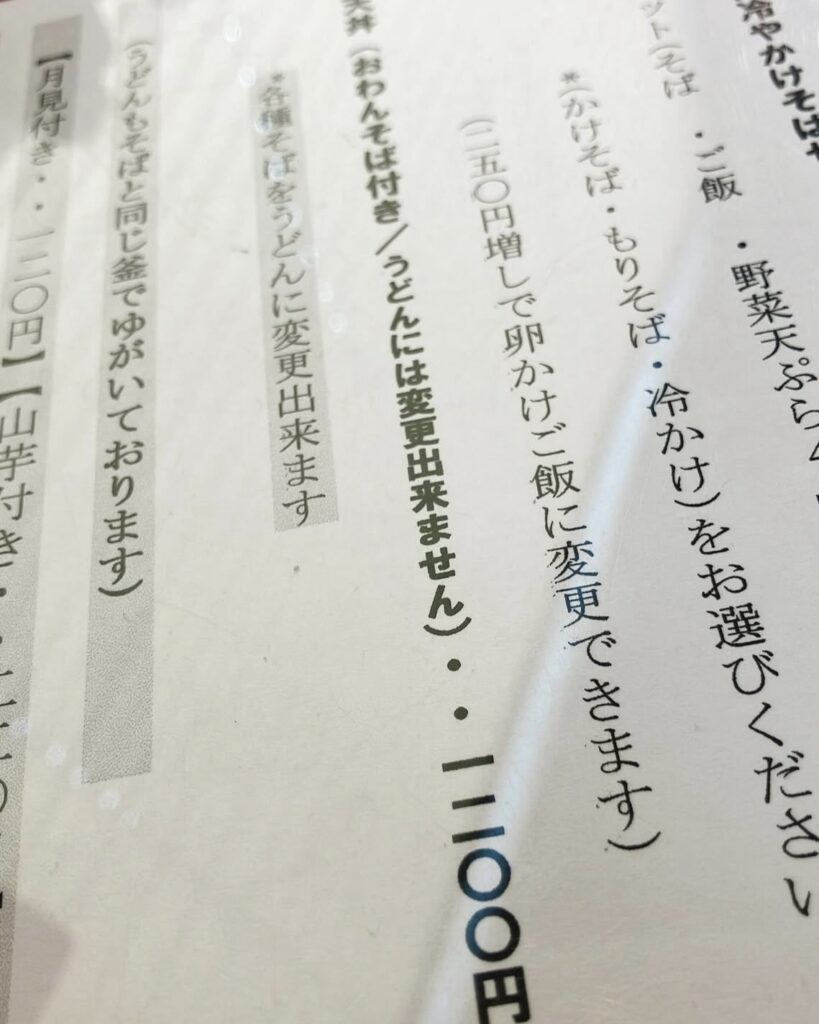 冷やかけそばや
ット(そば ・ご飯 ・野菜天ぷら
*(かけそば・もりそば・冷かけ)をお選びください
(二五〇円増しで卵かけご飯に変更できます)
天丼(おわんそば付き/うどんには変更出来ません)・・一二〇〇円
*各種そばをうどんに変更出来ます
(うどんもそばと同じ釜でゆがいております)
【月見付き・・一二〇円】【山芋付き・・